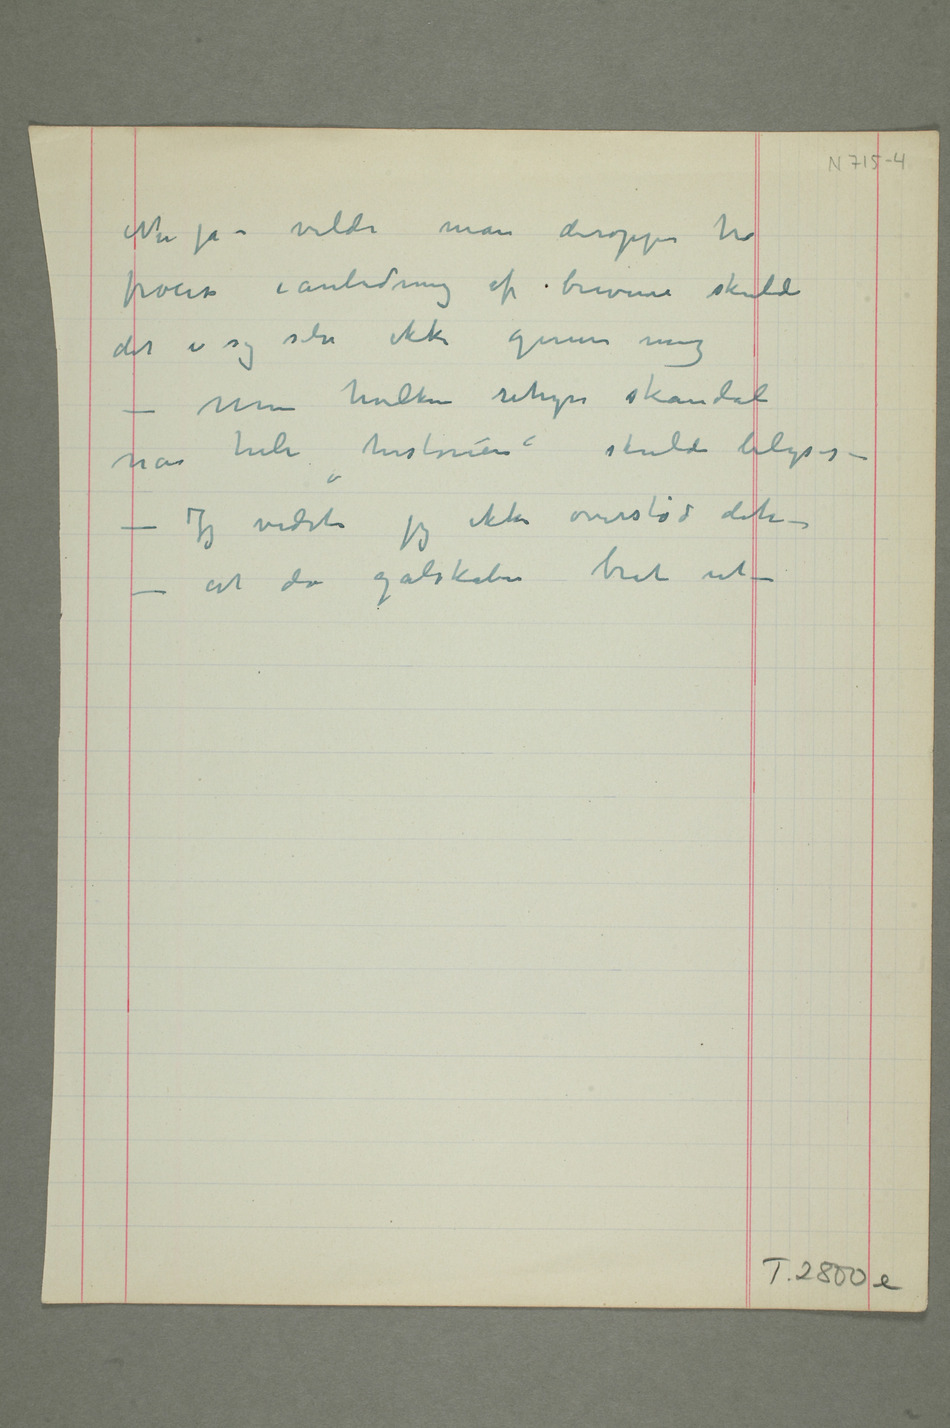 N 715-4
Nu ja – vilde man deroppe ha
proces i anledning af brevene skulde
det i sig selv ikke genere mig
– Men hvilken skandal
når hele „historien“ skulde belyses –
– Jeg vidste jeg ikke overstod dette –
– at da galskaben brøt ut –
T.2800 e